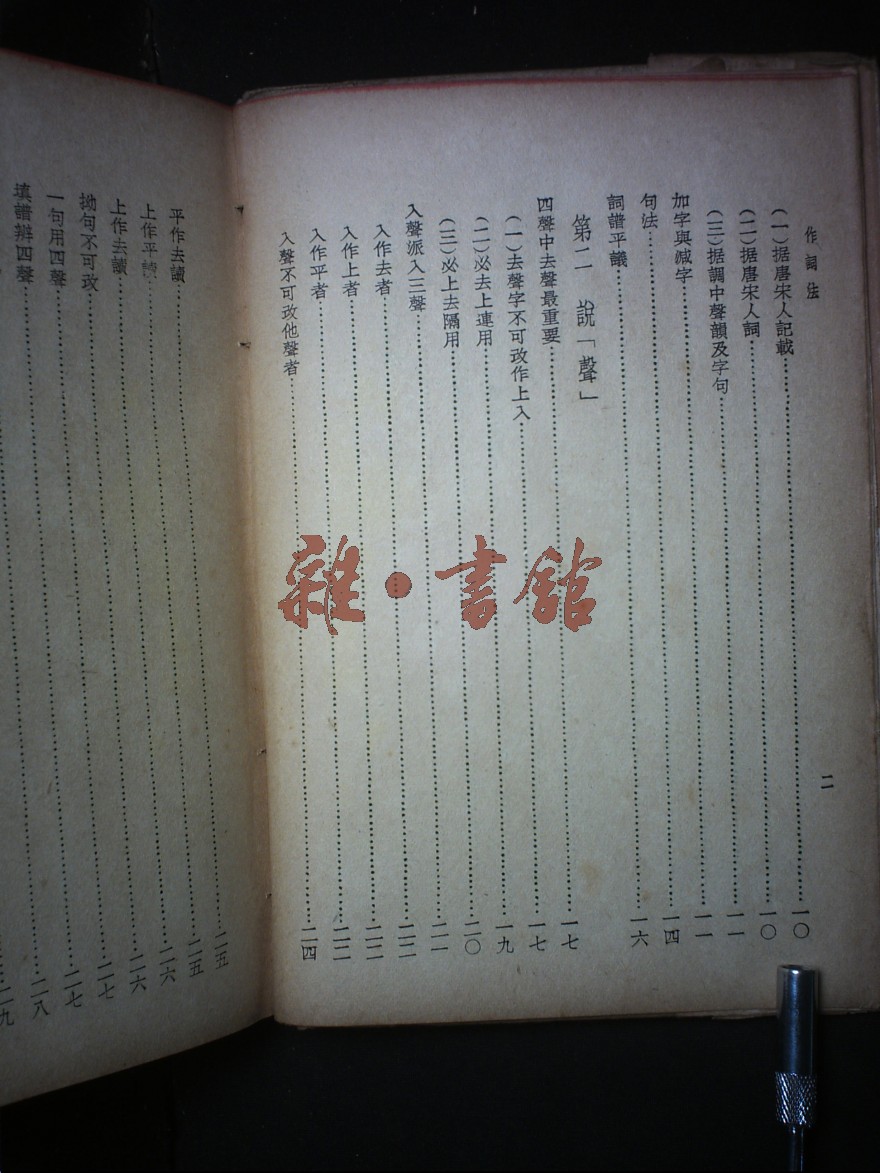 作詞法
二
(一)据唐宋人記載……一〇
(二)据唐宋人詞……一〇
(三)据調中聲韻及字句……一一
加字與減字……一一
句法……一四
詞譜平議……一六
第二 說「聲」
四聲中去聲最重要……一七
(一)去聲字不可改作上入……一七
(二)必去上連用……一九
(三)必上去隔用……二〇
入聲派入三聲……二一
入作去者……二二
入作上者……二二
入作平者……二二
入聲不可改他聲者……二四
平作去讀……二五
上作平讀……二五
上作去讀……二六
拗句不可改……二六
一句用四聲……二七
填譜辨四聲……二七
二八
二九
雜·書館